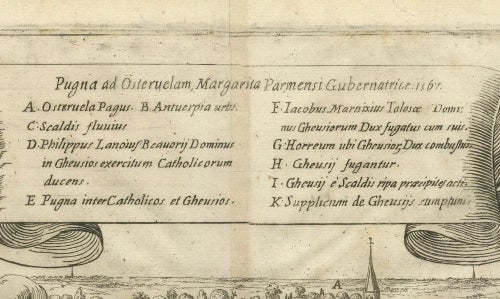 Pugna ad Osteruelam, Margarita Parmensi Gubernatrice. 1567.
A. Osteruela Pagus. B. Antuerpia urbs.
C. Scaldis fluvius
D. Philippus Lanoius Beauorij Dominus
in Gheusios exercitum Catholicorum
ducens.
E Pugna inter Catholicos et Gheusios.
F. Iacobus Marnixius Tolosæ Domi-
nus Gheusiorum Dux fugatus cum suis.
G Horreum ubi Gheusior. Dux combustus
H. Gheusij fugantur.
I. Gheusij è Scaldis ripa præcipites acti
K Supplicium de Gheusijs sumptum
A